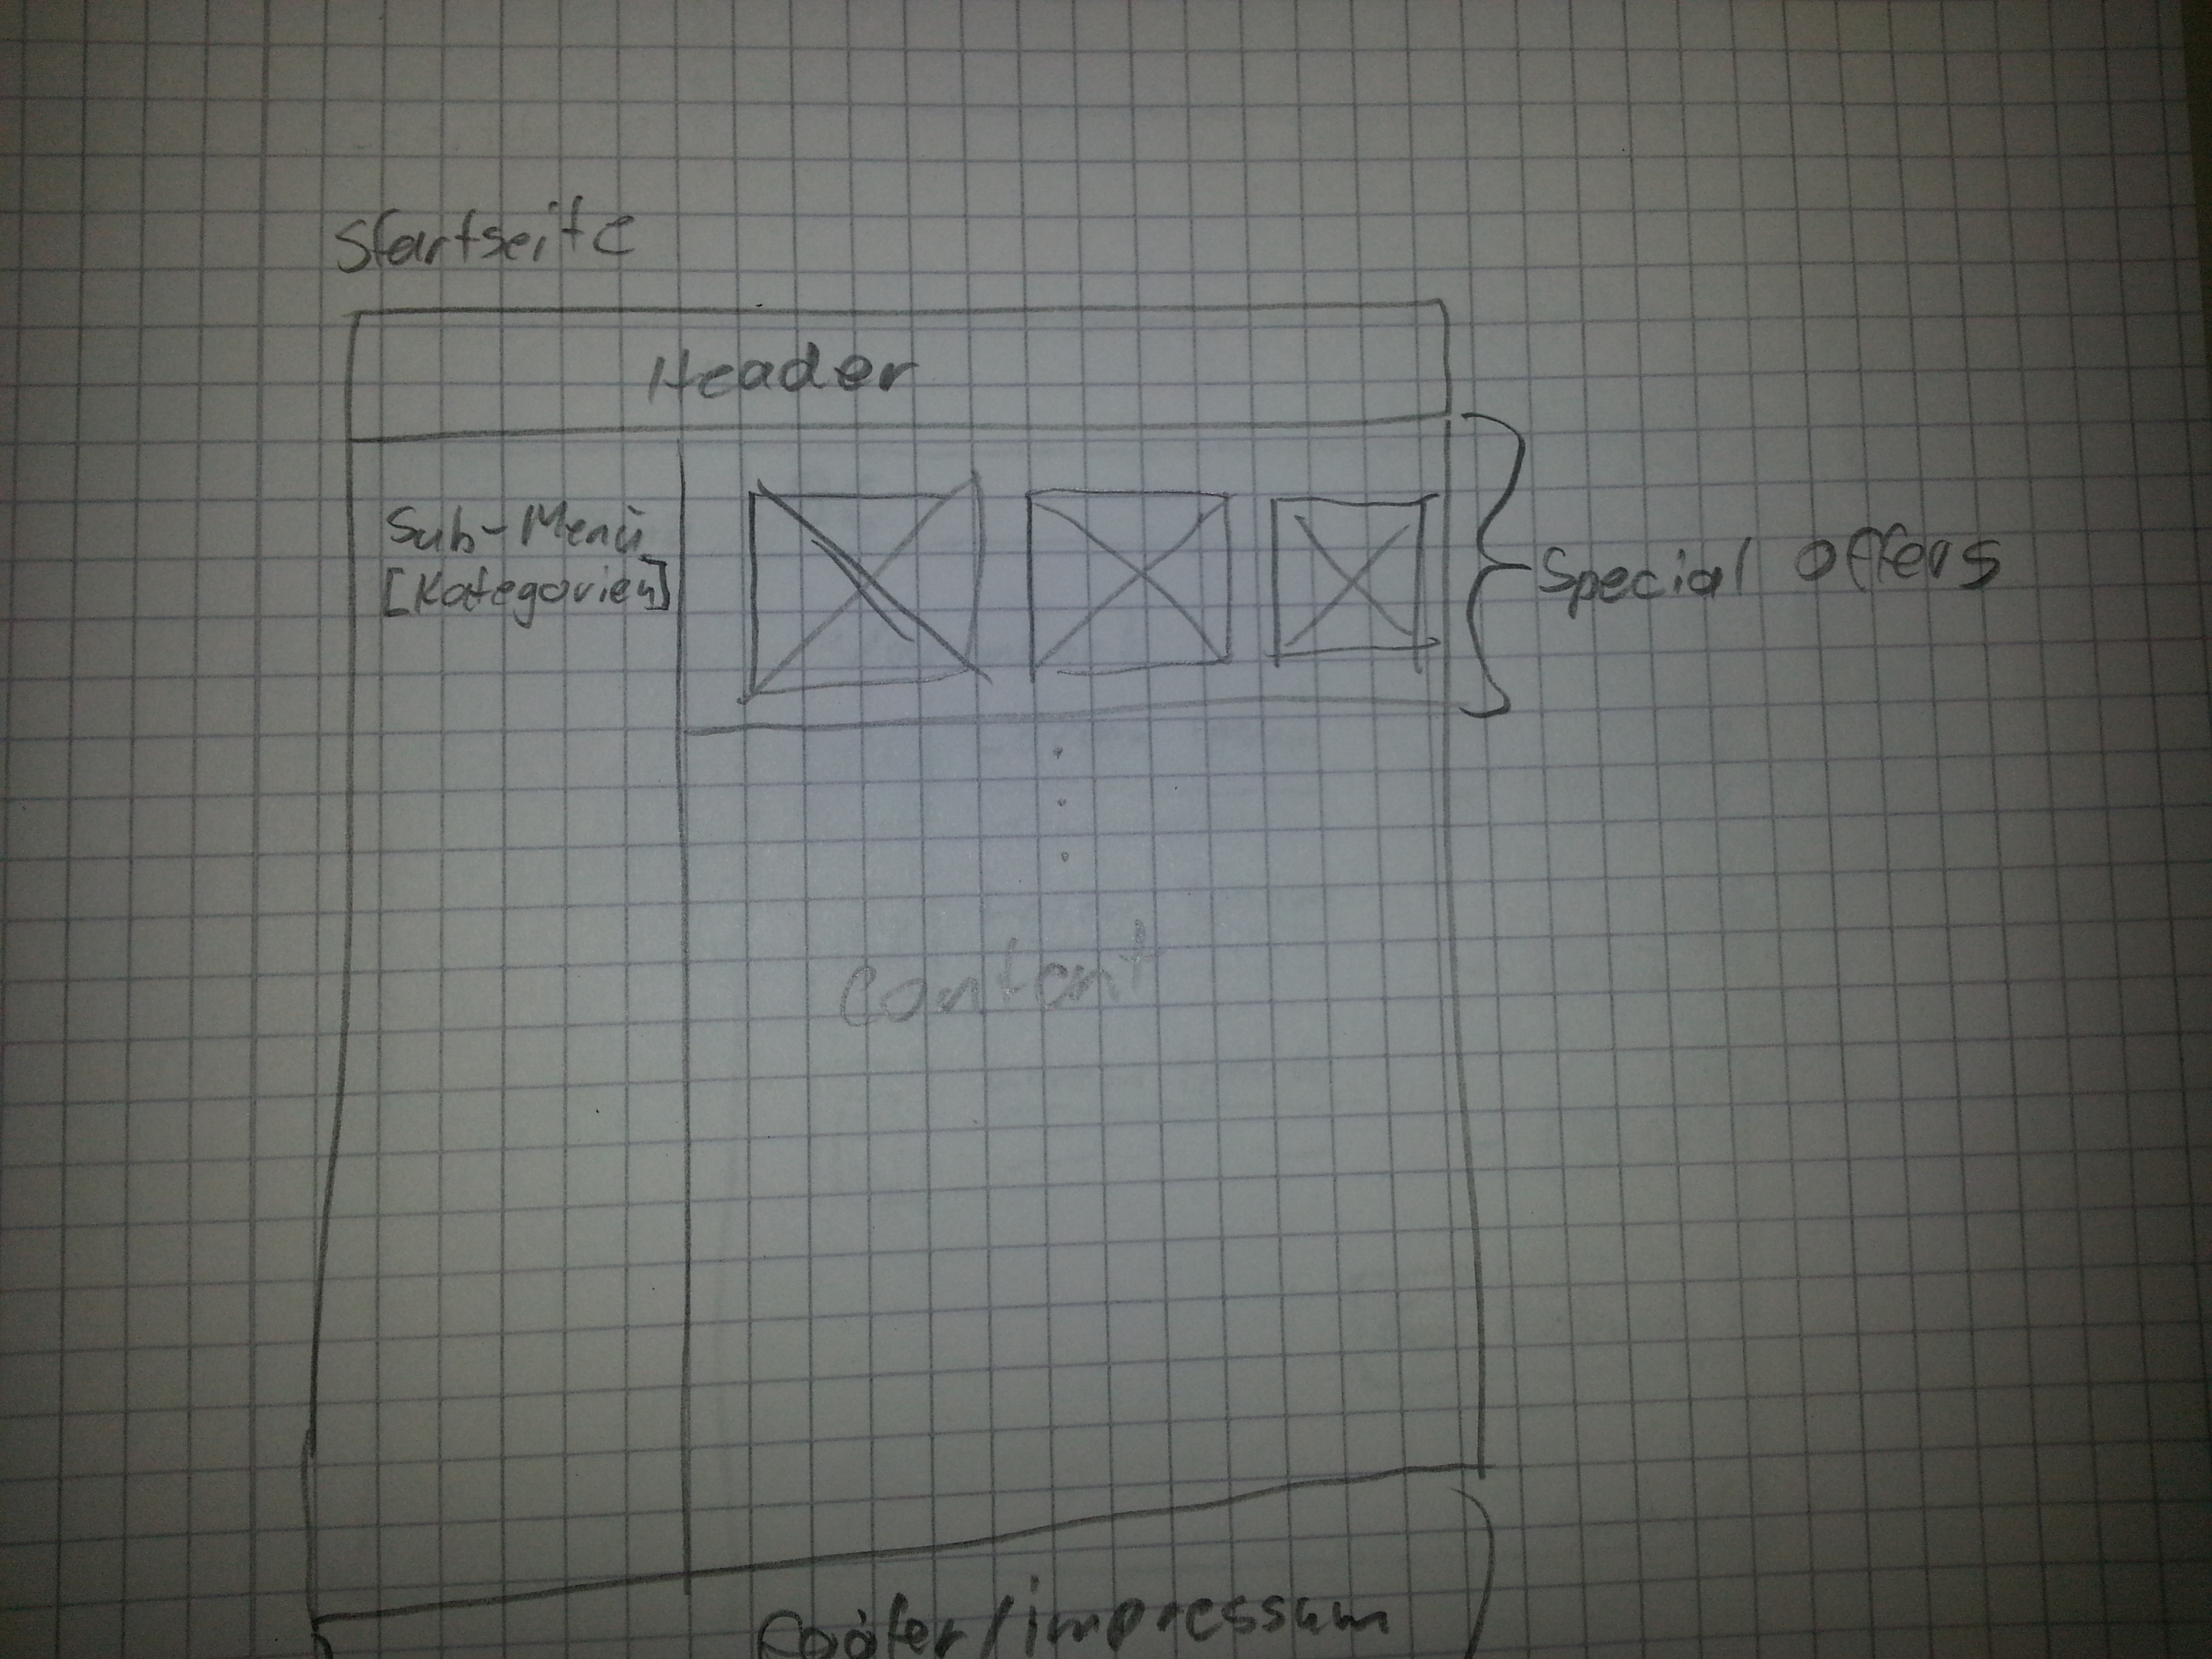 Startseite
Header
Sub-Menü
[Kategorien]
Special offers
content
Footer/impressum